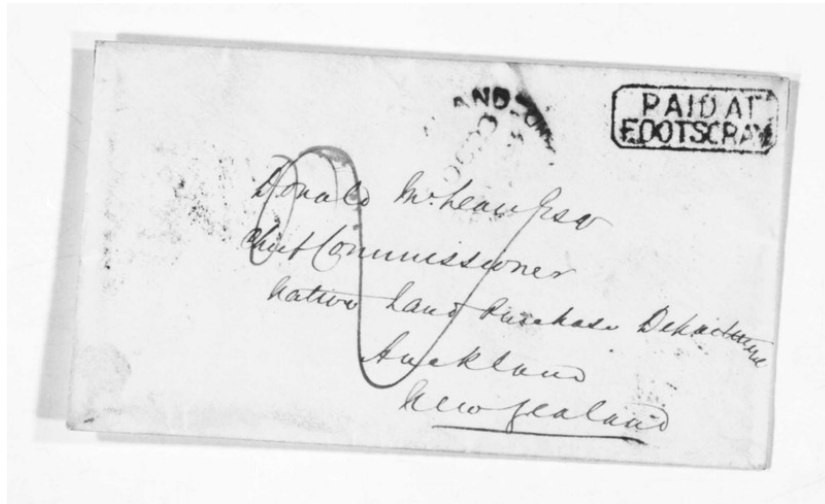 PAID AT
FOOTSCRAY
AND
Donald McLean Esqr
Chief Commissioner
Native Land Purchase Department
Auckland
New Zealand